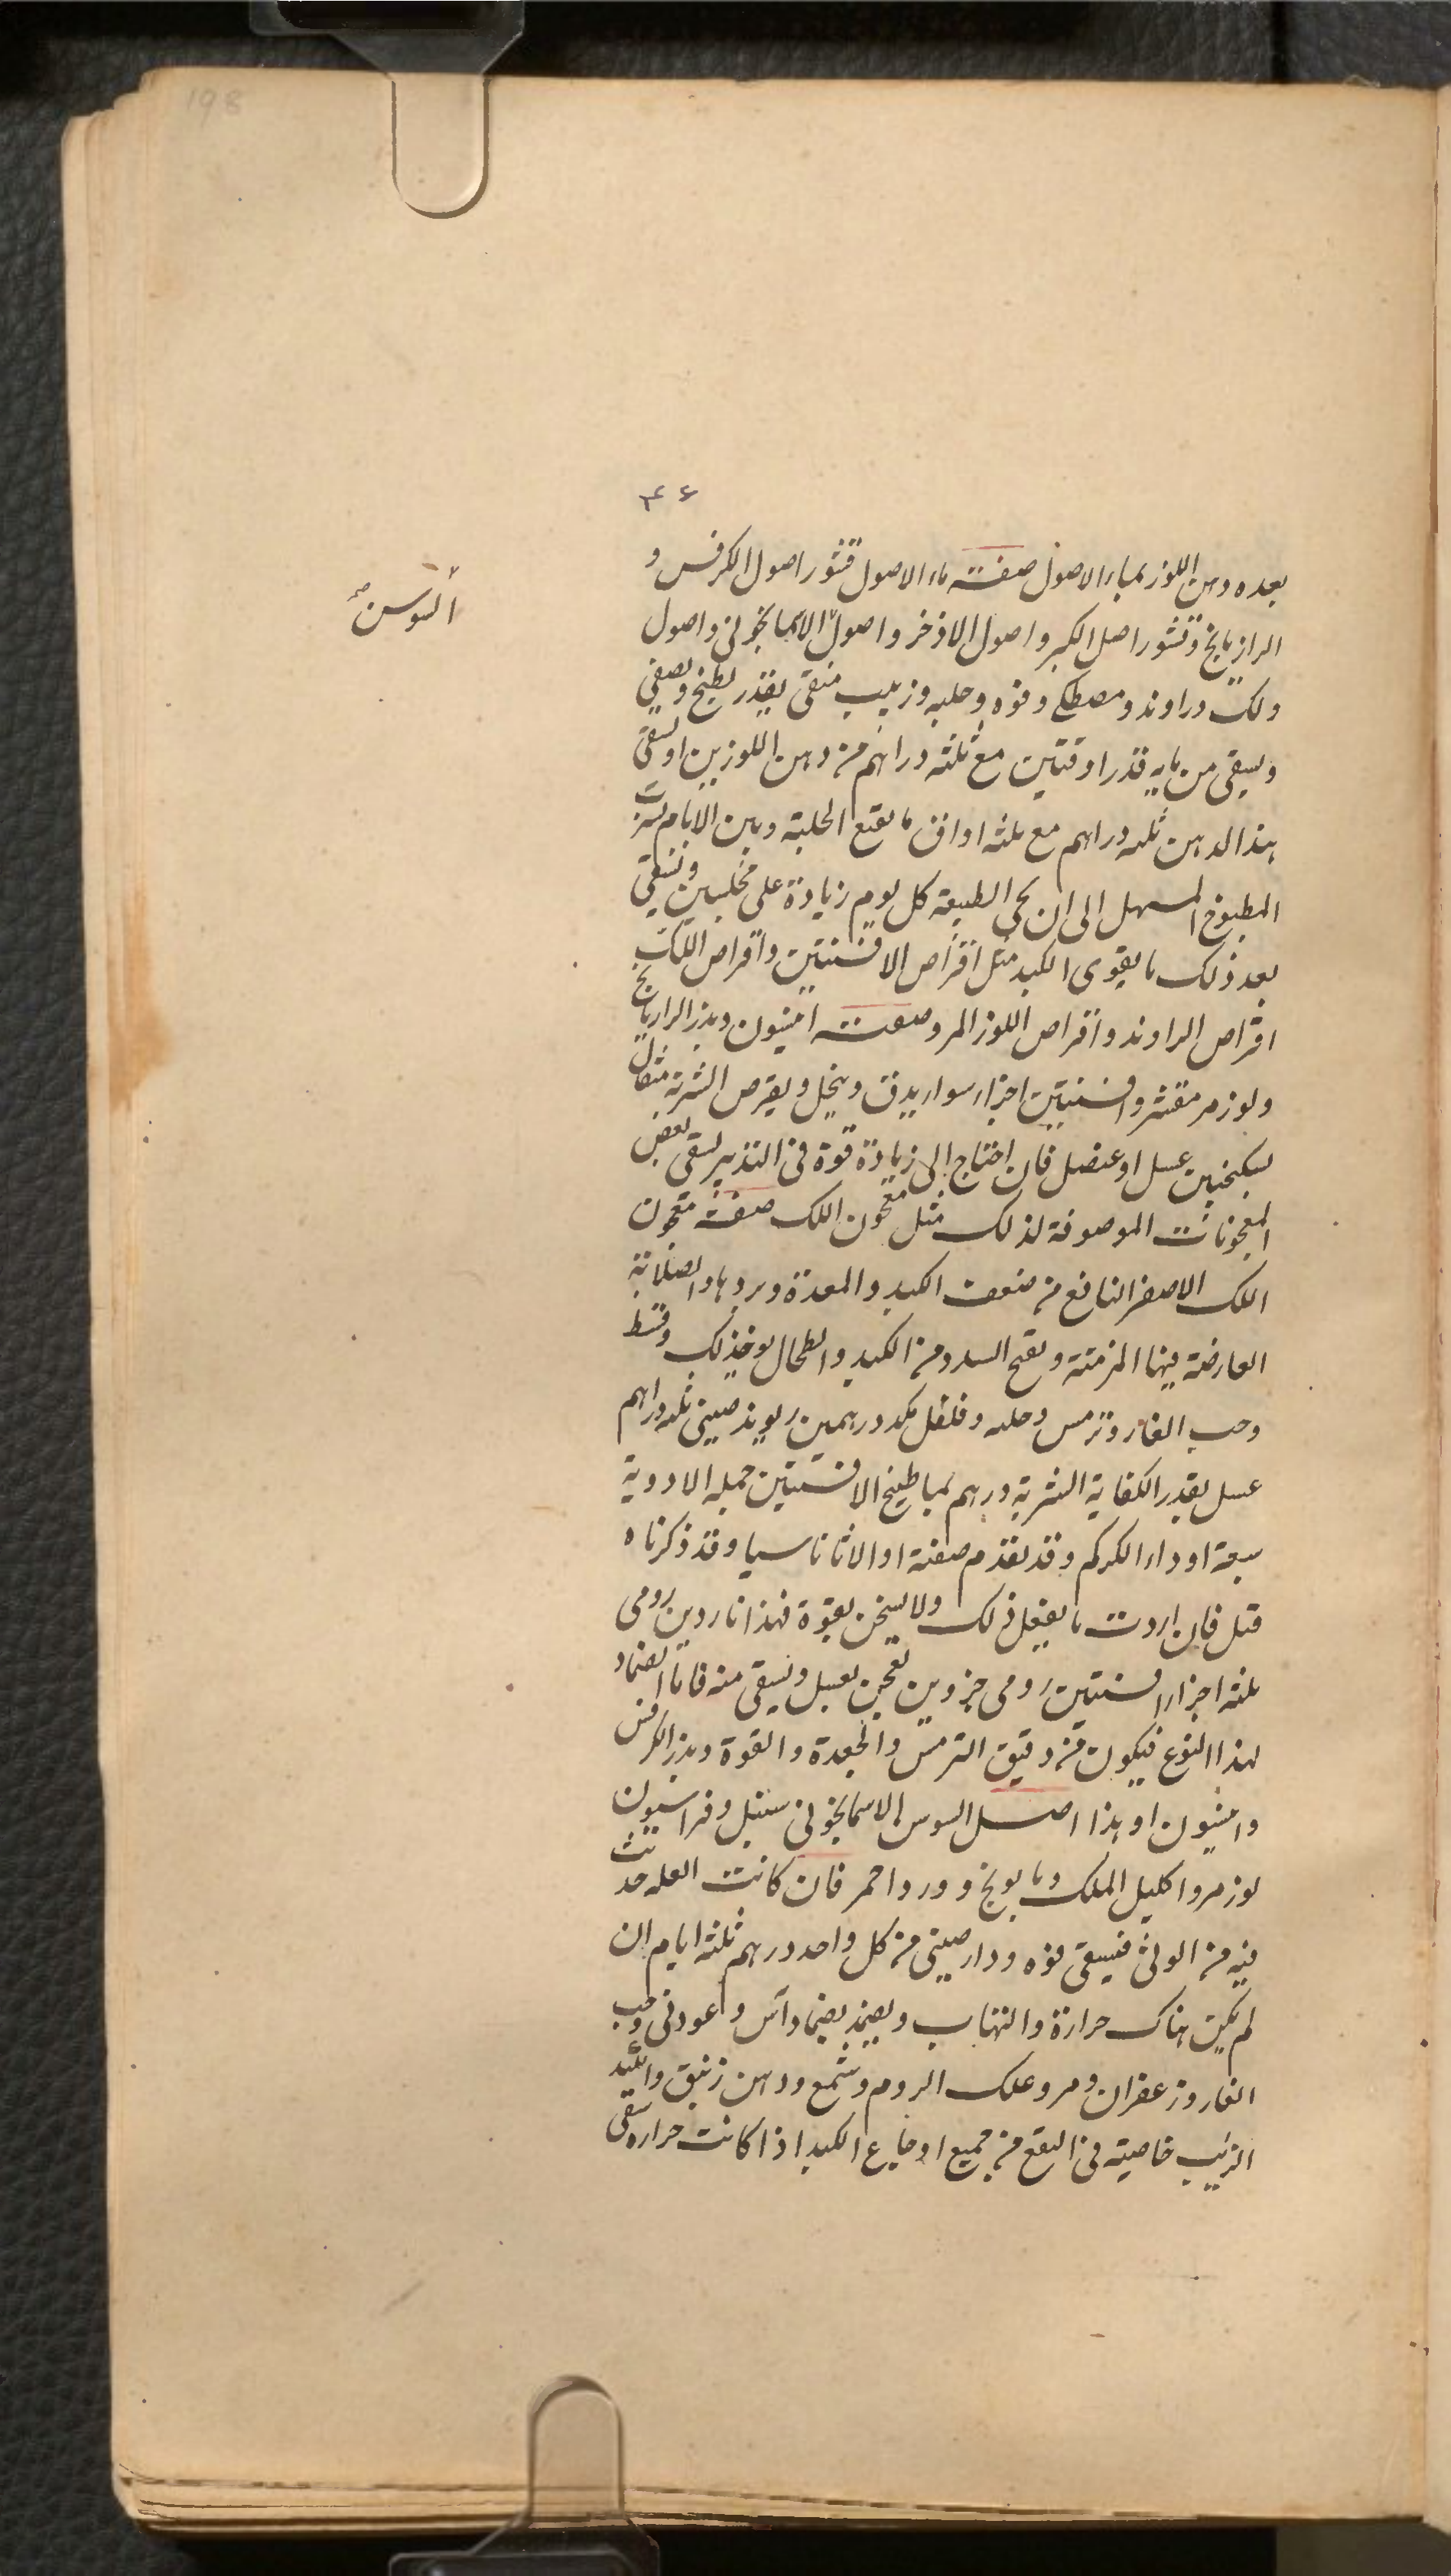 198
۳۴۶
بعده دهن اللوز بماء الاصول صفة ماء الاصول قشور اصول الكرفس و
الرازيانج وقشور اصل الكبر واصول الاذخر واصول الاسمانجونى واصول
السوسن
ولك وراوند ومصطكى وفوه وحلبه وزبيب منقى بقدر يطبخ ويصفى
ويسقى من مايه قدر اوقتين مع ثلثه دراهم من دهن اللوزين او يسقى
هذا الدهن ثلثه دراهم مع ثلثه اواق ما نقع الحلبة وبين الايام يشرب
المطبوخ المسهل الى ان يجى الطبيعة كل يوم زيادة على مجلسين ويسقى
بعد ذلك ما يقوى الكبد مثل اقراص الافسنتين واقراص اللك
اقراص الراوند واقراص اللوز المر وصفته انيسون وبزر الرازيانج
ولوز مر مقشر وافسنتين اجزا سوا يدق وينخل ويقرص الشربة مثقال
بسكنجبين عسل او عنصل فان احتاج الى زيادة قوة فى التدبير يسقى بعض
المعجونات الموصوفة لذلك مثل معجون اللك صفة معجون
اللك الاصغر النافع من ضعف الكبد والمعدة وبردها والصلابة
العارضة فيهما المزمنة ويفتح السدد من الكبد والطحال يوخذ لك وقسط
وحب الغار وترمس وحلبه وفلفل يكد درهمين ريوند صينى ثلثه دراهم
عسل بقدر الكفاية الشربة درهم بما طبيخ الافسنتين جملة الادوية
سبعة او دواء الكركم وقد تقدم صفته او الاثاناسيا وقد ذكرناه
قبل فان اردت ما يفعل ذلك ولا يسخن بقوة فهذا ناردين رومى
ثلثه اجزا افسنتين رومى جزوين تعجن بعسل ويسقى منه فاما الضماد
لهذا النوع فيكون من دقيق الترمس والجعدة والفوة وبزر الكرفس
وانيسون او هذا اصل السوس الاسمانجونى سنبل وفراسيون
لوز مر واكليل الملك وبابونج وورد احمر فان كانت العله حدثت
فيه من الوثى فيسقى فوه ودارصينى من كل واحد درهم ثلثه ايام ان
لم يكن هناك حرارة والتهاب ويضمد بضماد آس وعود نى وحب
الغار وزعفران ومر وعلك الروم وشمع ودهن زنبق
الزبيب خاصيته فى النفع من جميع اوجاع الكبد اذا كانت حراره سقى